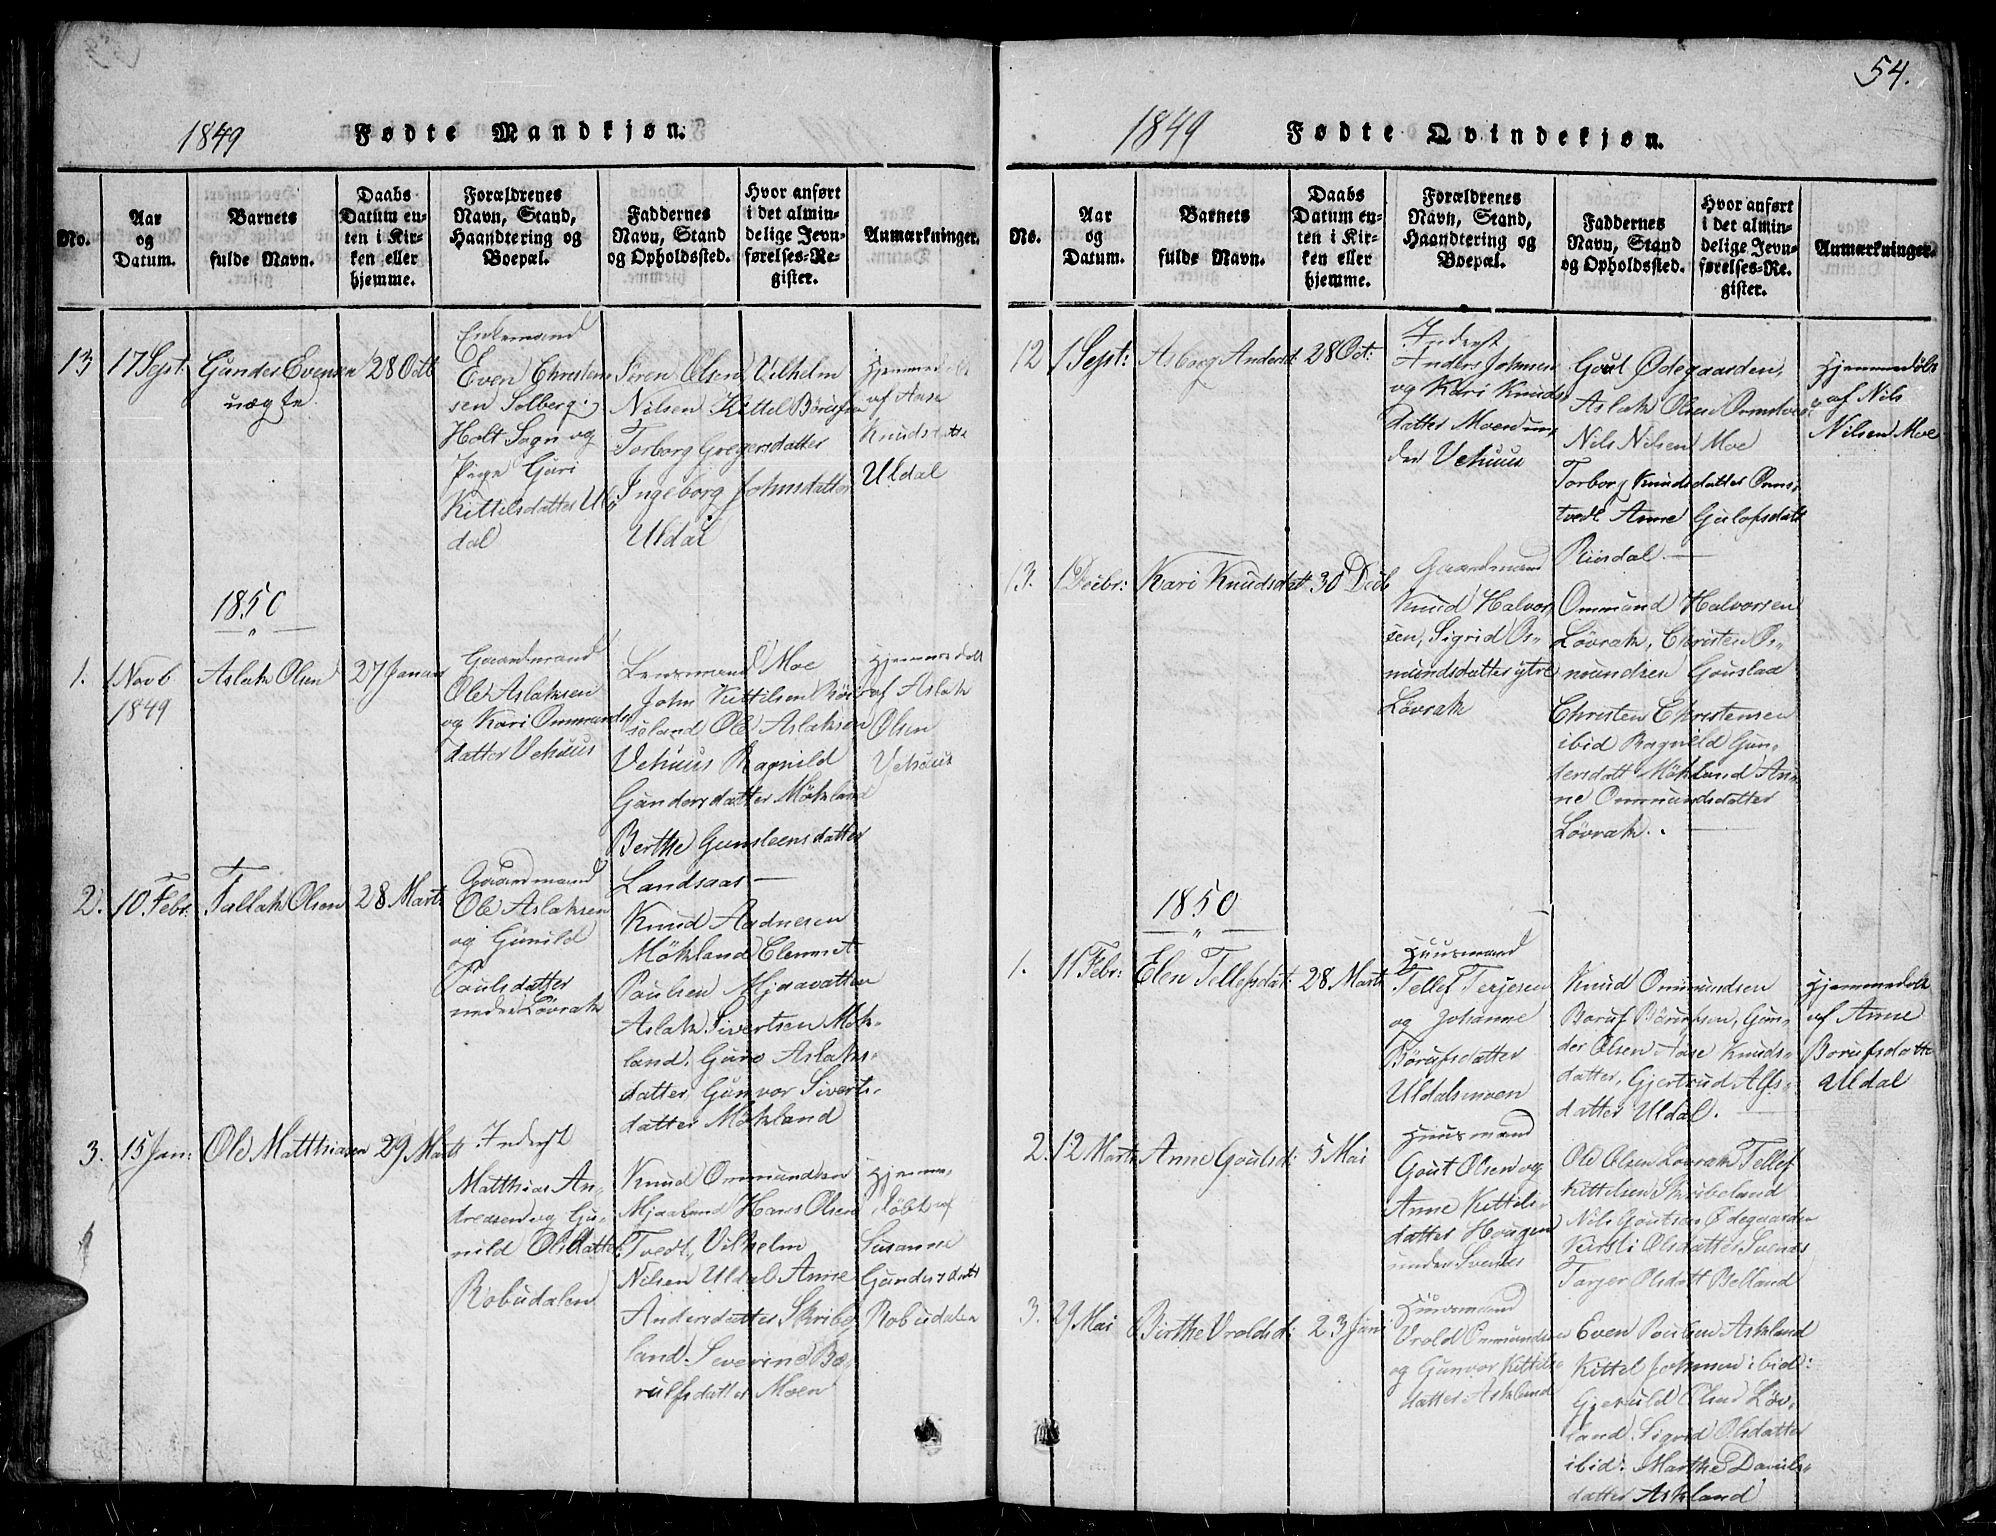 54.
1849 Fødte Mandkjøn.
No.
Aar
og
Datum.
Barnets
fulde Navn.
Daabs
Datum en-
ten i Kir-
ken eller
hjemme.
Forældrenes
Navn, Stand,
Haandtering og
Boepæl.
Faddernes
Navn, Stand
og Opholdssted.
Hvor anført
i det almin-
delige Jevn-
førelses-Re-
gister.
Anmærkninger.
13
17 Sept:
Gunder Evensen
uægte
28 Octb
Enkemand
Even Christen
sen Solberg
Holt Sogn og
Pige Guri
Kittelsdatter Ul
dal
Søren Olsen Vilhelm
Nilsen Kittel Børufsen
Torborg Gregersdatter
Ingeborg Johnsdatter
Uldal
Hjemmedøbt
af Aase
Knudsdatter
Uldal
1850
1.
1 Novb
1849
Aslak Olsen
27 Januar
Gaardmand
Ole Aslaksen
og Kari Ommunds
datter Vehuus
Lensmand Moe
John Kittilsen Røi
seland Ole Aslaksen
Vehuus Ragnild
Gundersdatter Mökland
Berthe Gunsteensdatter
Landsaas
Hjemmedøbt
af Aslak
Olsen
Vehuus
2.
10 Febr:
Tallak Olsen
28 Marts
Gaardmand
Ole Aslaksen
og Gunild
Poulsdatter
under Lövrak
Knud Aadnesen
Mökland Clemmet
Poulsen Mjaavatten
Aslak Sivertsen Mök-
land, Guro Aslaks-
datter, Gunvor Siverts-
datter Mökland
3.
15 Jan:
Ole Matthiasen
29 Marts
Inderst
Matthias An-
dreasen og Gu-
nild Olsdatter
Robudalen
Knud Ommundsen
Mjaaland Hans Olsen
Tvedt, Vilhelm
Nilsen Uldal Anne
Andersdatter Skribe-
land. Severine Bø-
rulfsdatter Moen
Hjemme-
døbt af
Susanne
Gundersdatter
Robudalen
1849 Fødte Qvindekjøn.
No.
Aar
og
Datum.
Barnets
fulde Navn.
Daabs
Datum en-
ten i Kir-
ken eller
hjemme.
Forældrenes
Navn, Stand,
Haandtering og
Boepæl.
Faddernes
Navn, Stand
og Opholdssted.
Hvor anført
i det almin-
delige Jevn-
førelses-Re-
gister.
Anmærkninger.
12
1 Sept:
Asborg Andersd:
28 Oct:
Inderst
Anders Johnsen
og Kari Knuds
datter Moen un-
der Vehuus
Gout Ødegaarden,
Aslak Olsen Omstvedt
Nils Nilsen Moe
Torborg Knudsdatter Oms-
tvedt Anne Gulofsdatt
Riisdal.
Hjemmedøbt
af Nils
Nilsen Moe
13.
1 Decbr:
Kari Knudsdatt
30 Decb
Gaardmand
Knud Halvor
sen, Sigrid Os-
mundsdatter ytre
Lövrak
Ommund Halvorsen
Lövrak, Christen Os-
mundsen Gouslaa
Christen Christensen
ibid Ragnild Gun-
dersdatt Mökland An-
ne Ommundsdatter
Lövrak.
1850
1.
11 Febr:
Elen Tellefsdat:
28 Marts
Huusmand
Tellef Terjesen
og Johanne
Börufsdatter
Uldalsmoen
Knud Ommundsen
Boruf Börufsen, Gun-
der Olsen Aase Knuds-
datter, Gjertrud Alfs-
datter Uldal.
Hjemmedøbt
af Anne
Borufsdatter
Uldal
2.
12 Marts
Anne Goutsd:
5 Mai
Huusmand
Gout Olsen og
Anne Kittils-
datter Hougen
under Svenes
Ole Olsen Lovrak Tellef
Kittelsen Skribeland
Nils Goutsen Ødegaarden
Kirsti Olsdatter Svenes
Tarjer Olsdatt Belland
3.
29 Mai
Birthe Vroldsd:
23 Juni
Huusmand
Vrold Ommundsen
og Gunvor Kittels
datter Askland
Even Poulsen Askland
Kittel Johnsen ibid:
Gjeruld Olsen Löv-
land. Sigrid Olsdatter
ibid: Marthe Daniels-
datter Askland